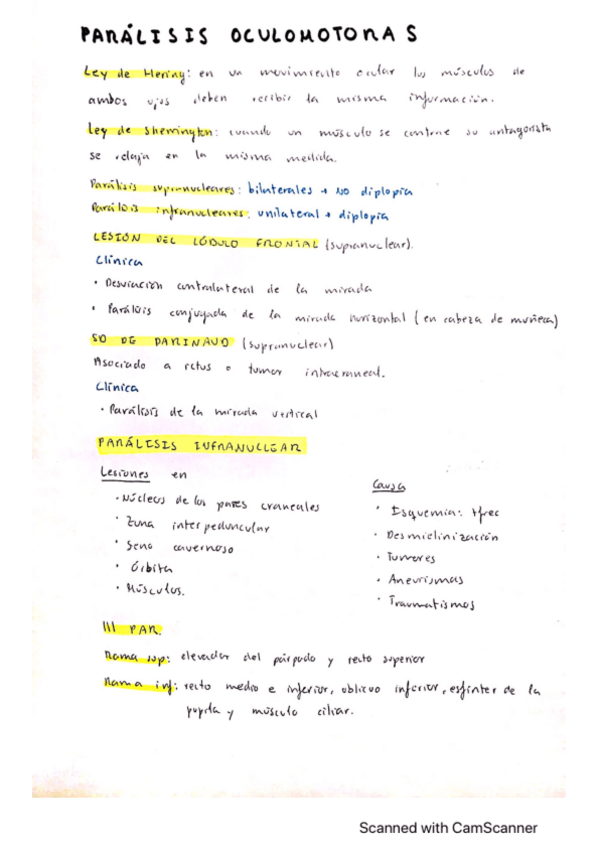 PARÁLISIS OCULOMOTORAS
Ley de Hering: en un movimiento ocular los músculos de
ambos ojos deben recibir la misma información.
Ley de Sherrington: cuando un músculo se contrae su antagonista
se relaja en la misma medida.
Parálisis supranucleares: bilaterales → NO diplopia
Parálisis infranucleares: unilateral → diplopia
LESIÓN DEL LÓBULO FRONTAL (supranuclear).
Clínica
· Desviación contralateral de la mirada
· Parálisis conjugada de la mirada horizontal (en cabeza de muñeca)
SD DE PARINAUD (supranuclear)
Asociado a ictus o tumor intracraneal.
Clínica
· Parálisis de la mirada vertical
PARÁLISIS INFRANUCLEAR
Lesiones en
· Núcleos de los pares craneales
· Zona interpeduncular
· Seno cavernoso
· Órbita
· Músculos.
Causa
· Isquemia:
· Desmielinización
· Tumores
· Aneurismas
· Traumatismos
III PAR.
Rama sup: elevador del párpado y recto superior
Rama inf: recto medio e inferior, oblicuo inferior, esfínter de la
pupila y músculo ciliar.
Scanned with CamScanner